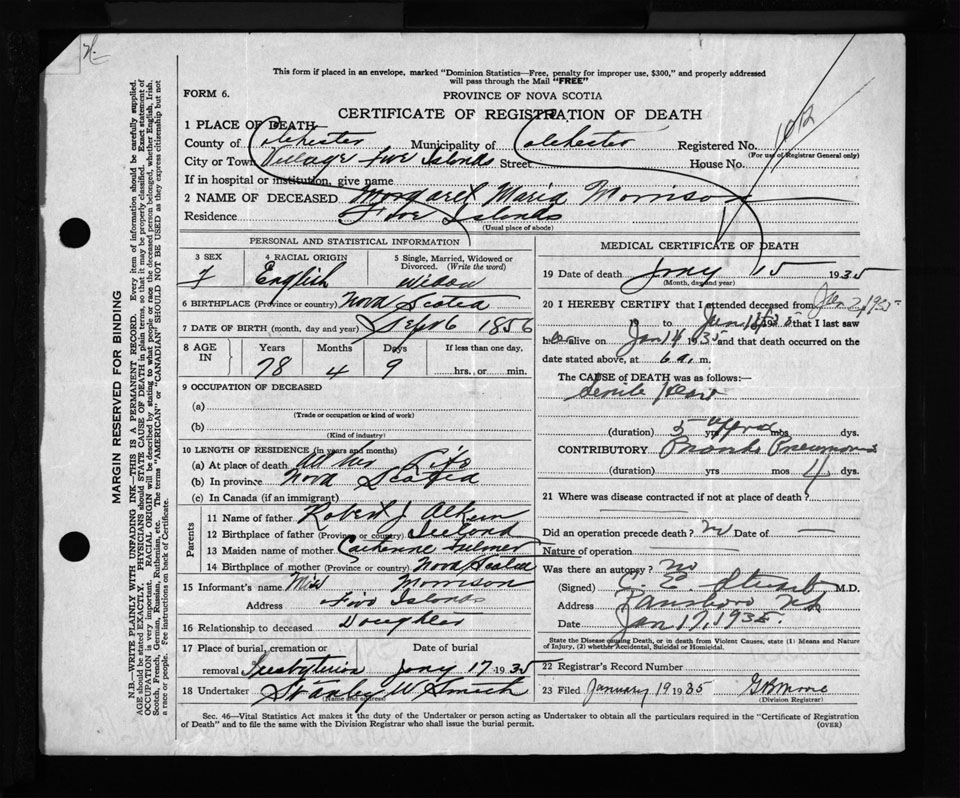 This form if placed in an envelope, marked "Dominion Statistics—Free, penalty for improper use, $300," and properly addressed
will pass through the Mail "FREE"
FORM 6.
PROVINCE OF NOVA SCOTIA
CERTIFICATE OF REGISTRATION OF DEATH
1 PLACE OF DEATH
County of Colchester Municipality of Colchester Registered No. 1012
(For use of Registrar General only)
City or Town Village Five Islands Street House No.
If in hospital or institution, give name
2 NAME OF DECEASED Margaret Maria Morrison
Residence Five Islands
(Usual place of abode)
PERSONAL AND STATISTICAL INFORMATION
3 SEX 4 RACIAL ORIGIN 5 Single, Married, Widowed or
Divorced. (Write the word)
F English Widow
6 BIRTHPLACE (Province or country) Nova Scotia
7 DATE OF BIRTH (month, day and year) Sept 6 1856
8 AGE IN Years Months Days If less than one day,
78 4 9 hrs. or min.
9 OCCUPATION OF DECEASED
(a)
(Trade or occupation or kind of work)
(b)
(Kind of industry)
10 LENGTH OF RESIDENCE (in years and months)
(a) At place of death All her Life
(b) In province Nova Scotia
(c) In Canada (if an immigrant)
Parents
11 Name of father Robert J
12 Birthplace of father (Province or country)
13 Maiden name of mother Catherine
14 Birthplace of mother (Province or country) Nova Scotia
15 Informant's name Miss Morrison
Address Five Islands
16 Relationship to deceased Daughter
17 Place of burial, cremation or Date of burial
removal Presbyterian Jany 17 1935
18 Undertaker Stanley W Smith
(Name and address)
MEDICAL CERTIFICATE OF DEATH
19 Date of death Jany 15 1935
(Month, day and year)
20 I HEREBY CERTIFY that I attended deceased from Jan 2, 1935
19 to Jan 193 that I last saw
her alive on Jan 14 1935 and that death occurred on the
date stated above, at 6 a. m.
The CAUSE of DEATH was as follows:—
Senile Heart
(duration) 5 yrs mos dys.
CONTRIBUTORY Broncho Pneumonia
(duration) yrs mos 4 dys.
21 Where was disease contracted if not at place of death?
Did an operation precede death? no Date of
Nature of operation
Was there an autopsy? no
(Signed) C. E. Stuart M.D.
Address Parrsboro NS
Date Jan 17, 1935
State the Disease causing Death, or in death from Violent Causes, state (1) Means and Nature
of Injury, (2) whether Accidental, Suicidal or Homicidal.
22 Registrar's Record Number
23 Filed January 19 1935 G B Moore
(Division Registrar)
Sec. 46—Vital Statistics Act makes it the duty of the Undertaker or person acting as Undertaker to obtain all the particulars required in the "Certificate of Registration
of Death" and to file the same with the Division Registrar who shall issue the burial permit.
(OVER)
MARGIN RESERVED FOR BINDING
N.B.—WRITE PLAINLY WITH UNFADING INK—THIS IS A PERMANENT RECORD. Every item of information should be carefully supplied.
AGE should be stated EXACTLY. PHYSICIANS should STATE CAUSE OF DEATH in plain terms, so that it may be properly classified. Exact statement of
OCCUPATION is very important. RACIAL ORIGIN will be described by stating to what people or race the deceased person belonged, whether English, Irish,
Scotch, French, German, Russian, Ruthenian, etc. The terms "AMERICAN" or "CANADIAN" SHOULD NOT BE USED as they express citizenship but not
a race or people. Fee instructions on back of Certificate.